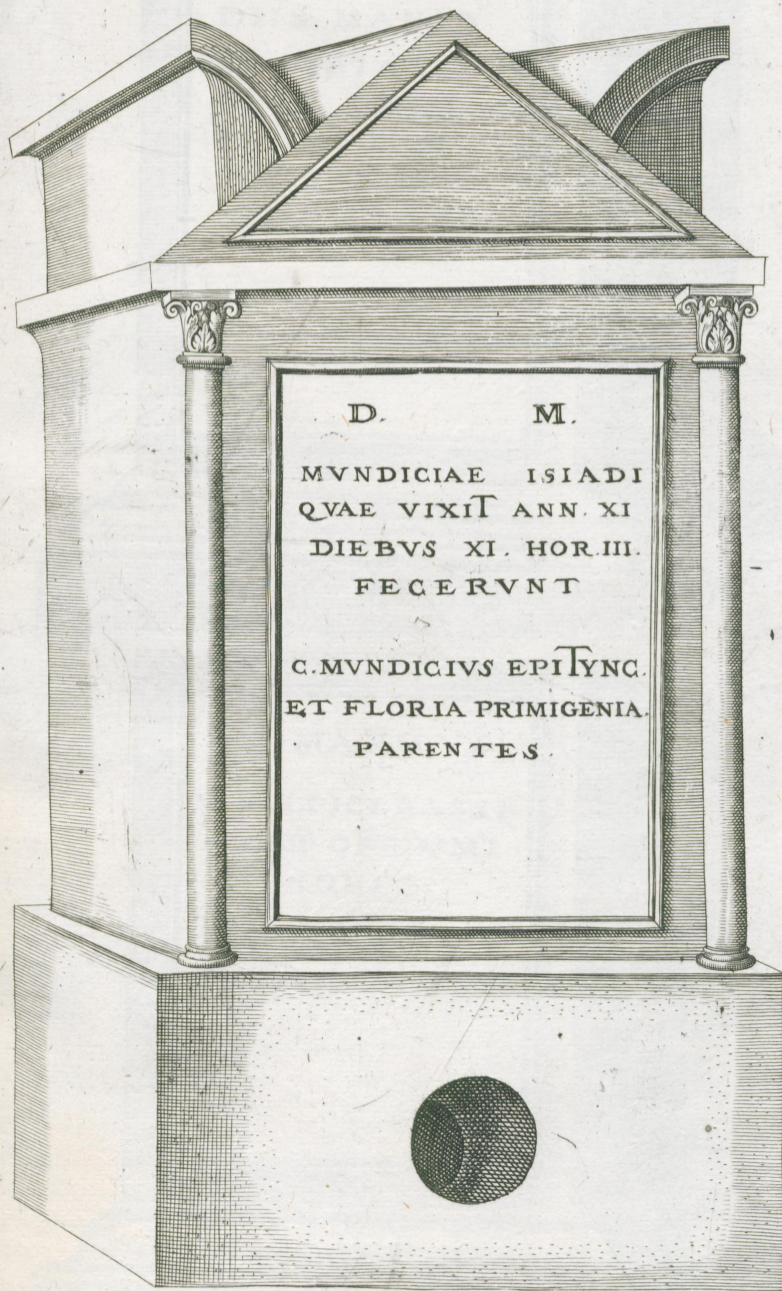 D. M.
MVNDICIAE ISIADI
QVAE VIXIT ANN. XI
DIEBVS XI. HOR.III.
FECERVNT
C.MVNDICIVS EPITYNC.
ET FLORIA PRIMIGENIA.
PARENTES.